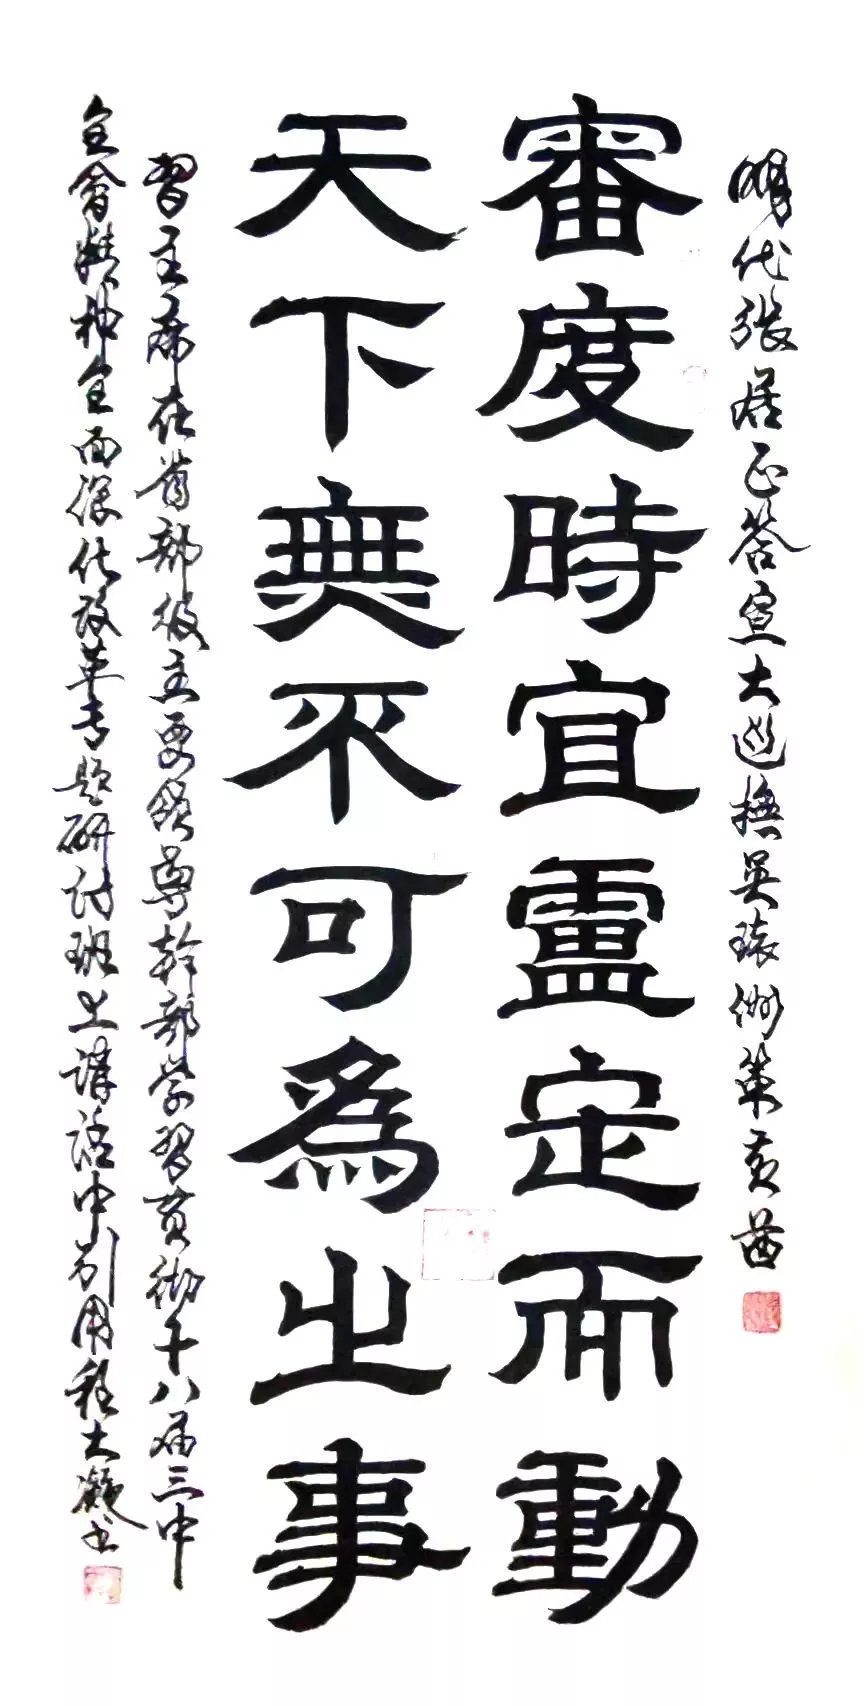 明代張居正答宣大巡撫吳環洲策黃酋
審度時宜盧定而動
天下無不可為之事
習主席在省部級主要領導幹部学習貫彻十八届三中
全會精神全面深化改革专題研討班上講話中引用程大凝书